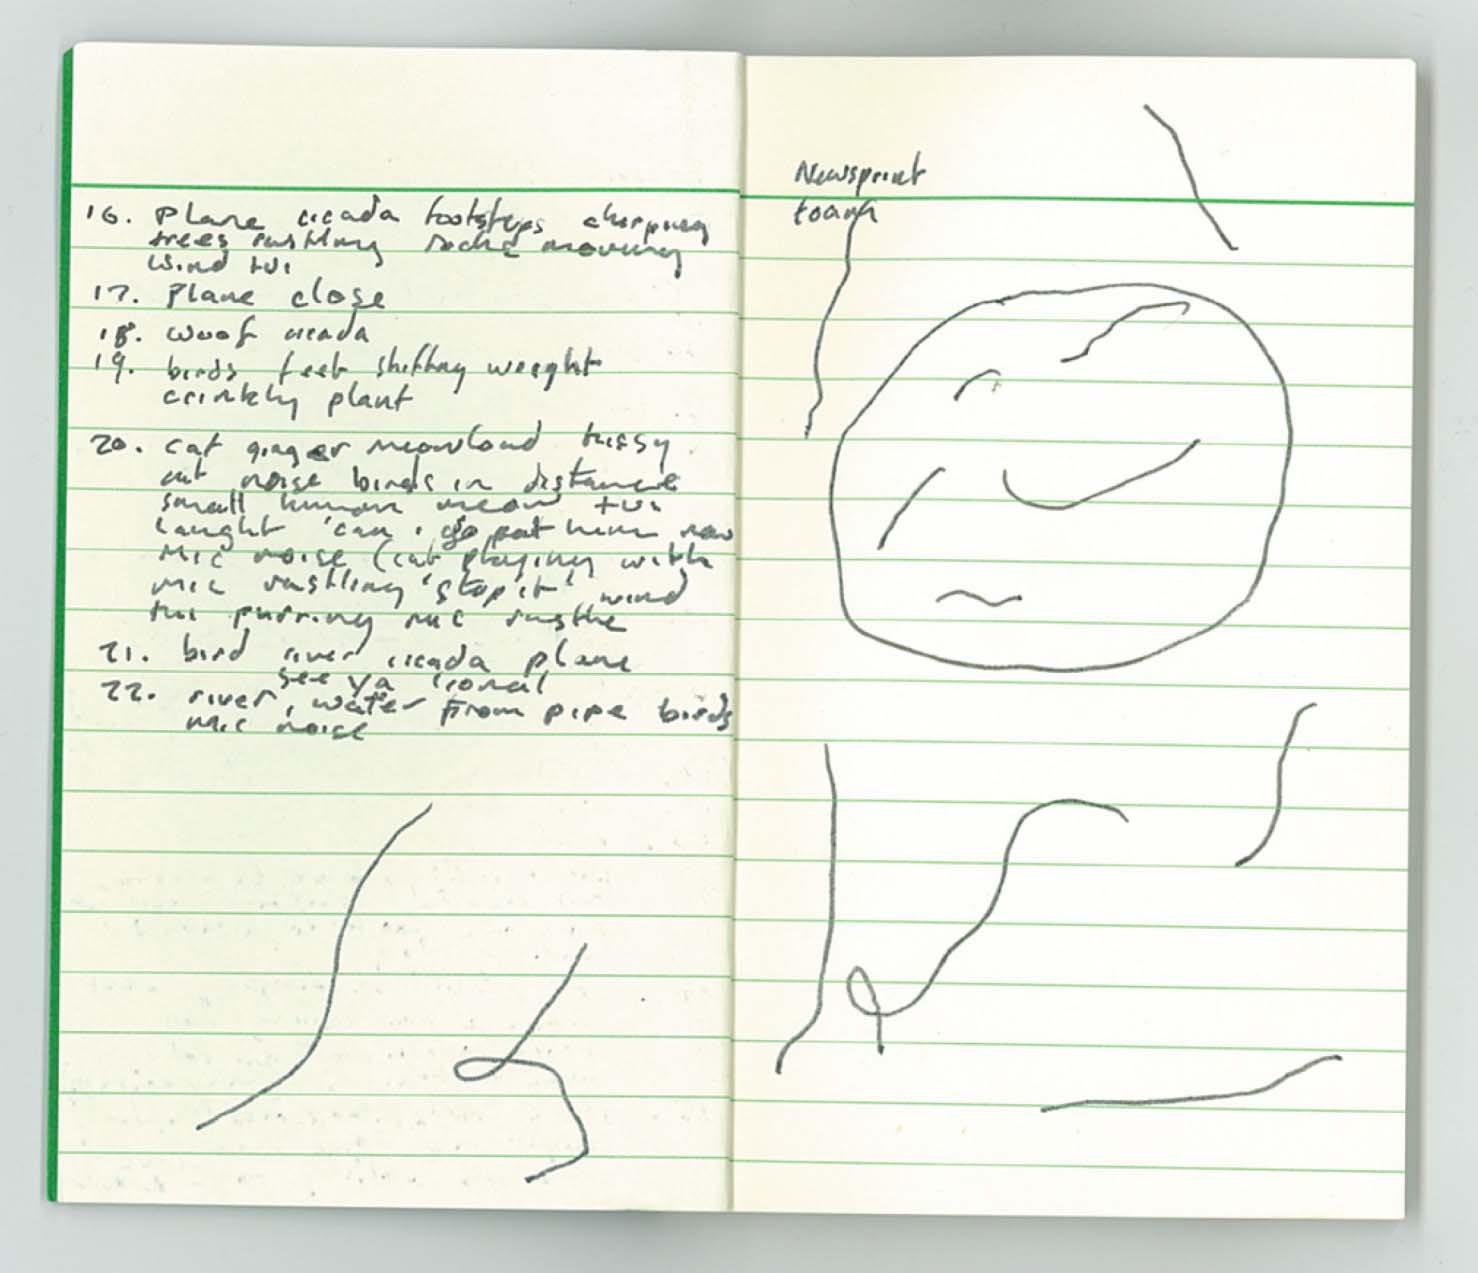 16. plane cicada footsteps chirping
trees rustling rocks moving
wind tui
17. Plane close
18. woof cicada
19. birds feet shifting weight
crinkly plant
20. cat ginger meow loud hissy
cat noise birds in distance
small human meow tui
laught 'can i go pat him now
Mic noise (cat playing with
mic rustling 'stop it' wind
tui purring mic rustle
21. bird river cicada plane
see ya
22. river, water from pipe birds
Mic noise
Newsprint